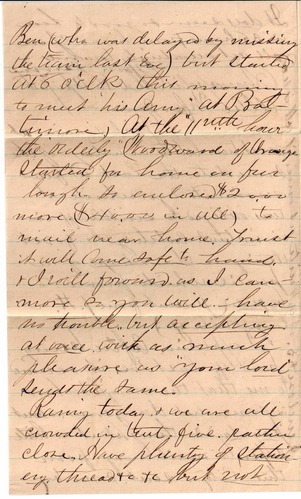 Ben (who was delayed by missing
the train last Eve) but started
At 6 o'clk this morning
to meet his Army at Bal-
timore, At the "11nth hour"
the Orderly (Woodward of Orange
started for home on fur
lough. So enclosed $2
more ( in all) to
mail near home. Trust
it will Come safe to hand,
& I will forward as I can
more so you will have
no trouble but accepting
at once with as much
pleasure as your lord
sends the same.
Rainy today & we are all
crowded in tent, five. rather
close. Have plenty of station
ery thread &c &c but not